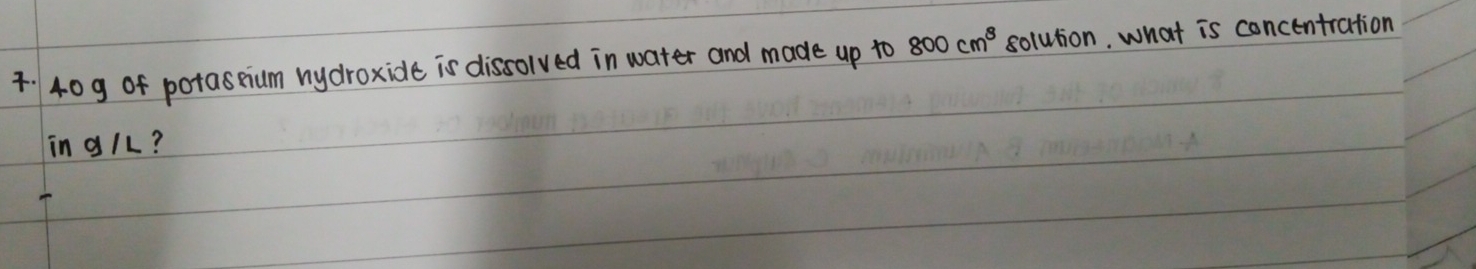 7. 40g of potassium hydroxide is dissolved in water and made up to 800 cm³ solution. What is concentration
in g/L?
-